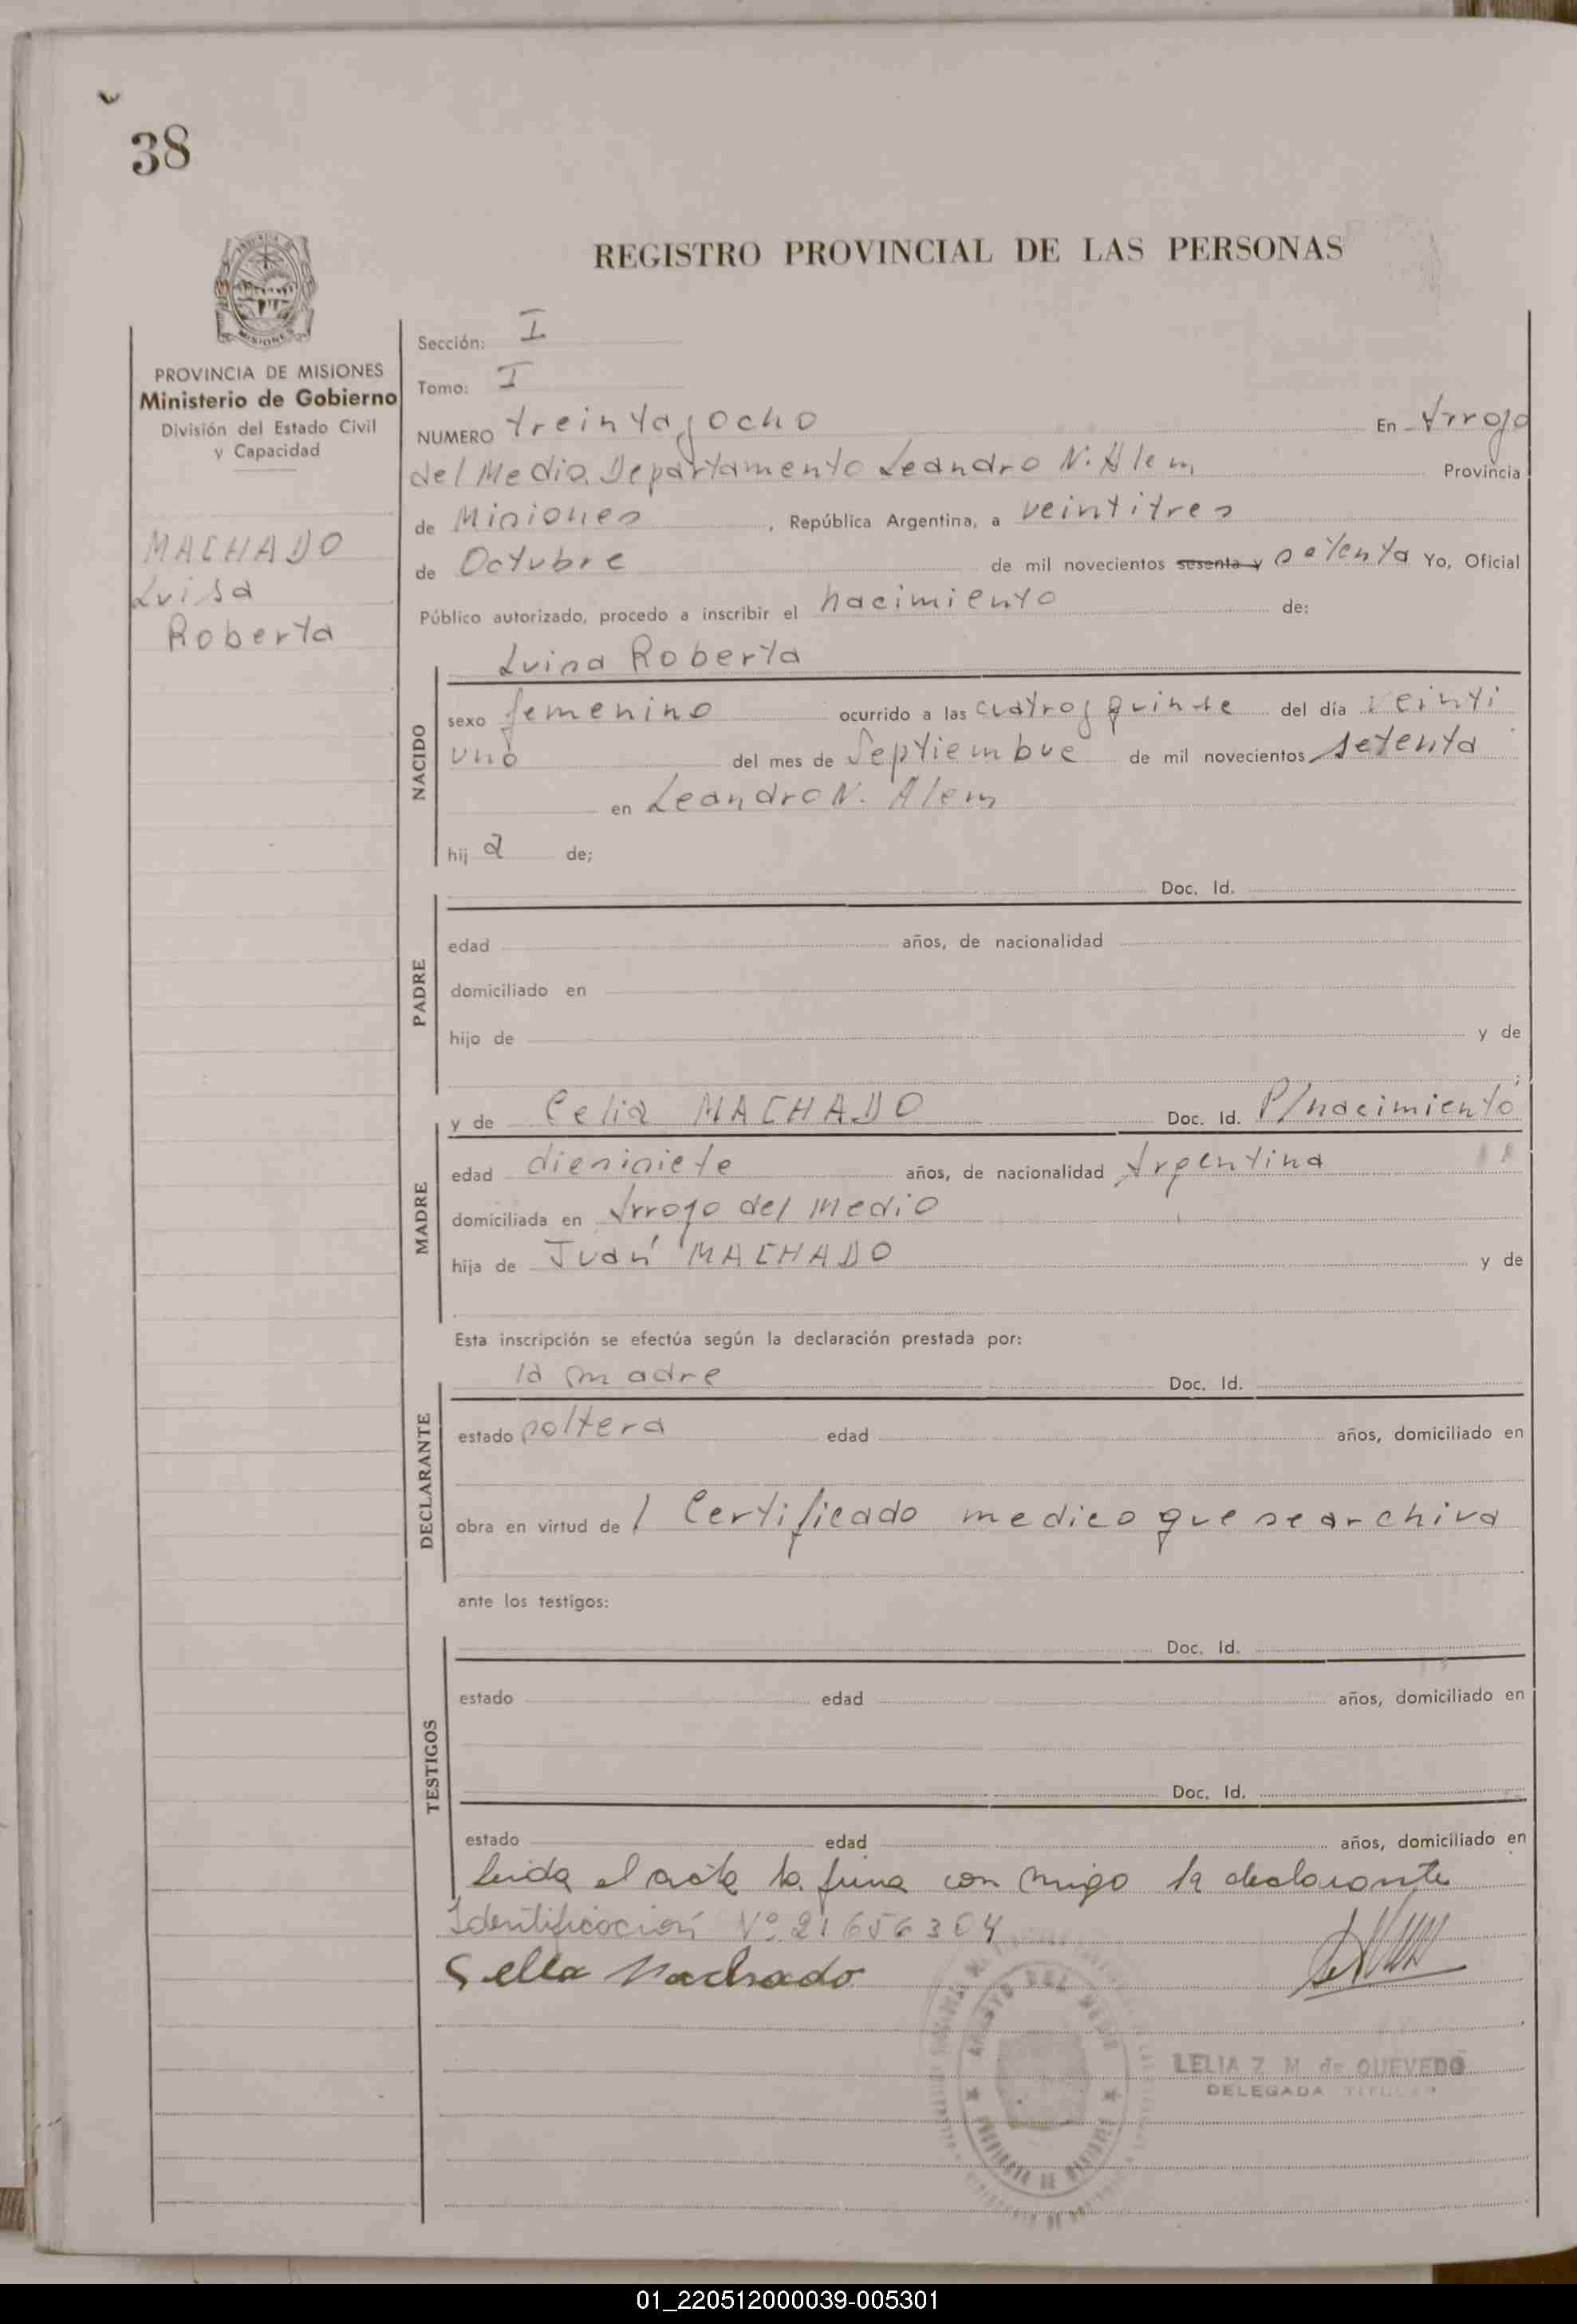 38
REGISTRO PROVINCIAL DE LAS PERSONAS
MISIONES
PROVINCIA DE MISIONES
Ministerio de Gobierno
División del Estado Civil
y Capacidad
MACHADO
Luisa
Roberta
Sección: I
Tomo: I
NUMERO treinta y ocho En Arroyo
del Medio. Departamento Leandro N. Alem Provincia
de Misiones, República Argentina, a veintitres
de Octubre de mil novecientos sesenta y setenta Yo, Oficial
Público autorizado, procedo a inscribir el nacimiento de:
Luisa Roberta
NACIDO
sexo femenino ocurrido a las cuatro y quince del día veinti
uno del mes de Septiembre de mil novecientos setenta
en Leandro N. Alem
hija de;
PADRE
Doc. Id.
edad años, de nacionalidad
domiciliado en
hijo de y de
MADRE
y de Celia MACHADO Doc. Id. P/nacimiento
edad diesisiete años, de nacionalidad Argentina
domiciliada en Arroyo del Medio
hija de Juan MACHADO y de
Esta inscripción se efectúa según la declaración prestada por:
DECLARANTE
la madre Doc. Id.
estado soltera edad años, domiciliado en
obra en virtud de 1 Certificado medico que se archiva
ante los testigos:
TESTIGOS
Doc. Id.
estado edad años, domiciliado en
Doc. Id.
estado edad años, domiciliado en
leida el acta la firma con migo la declarante
Identificación Nº 21656304
Sella Machado
LELIA Z M de QUEVEDO
DELEGADA TITULAR
PROVINCIA DE MISIONES
01_220512000039-005301